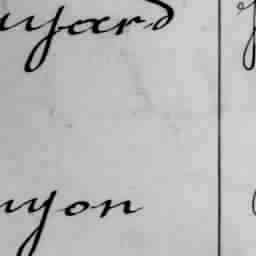 uyard
nyon